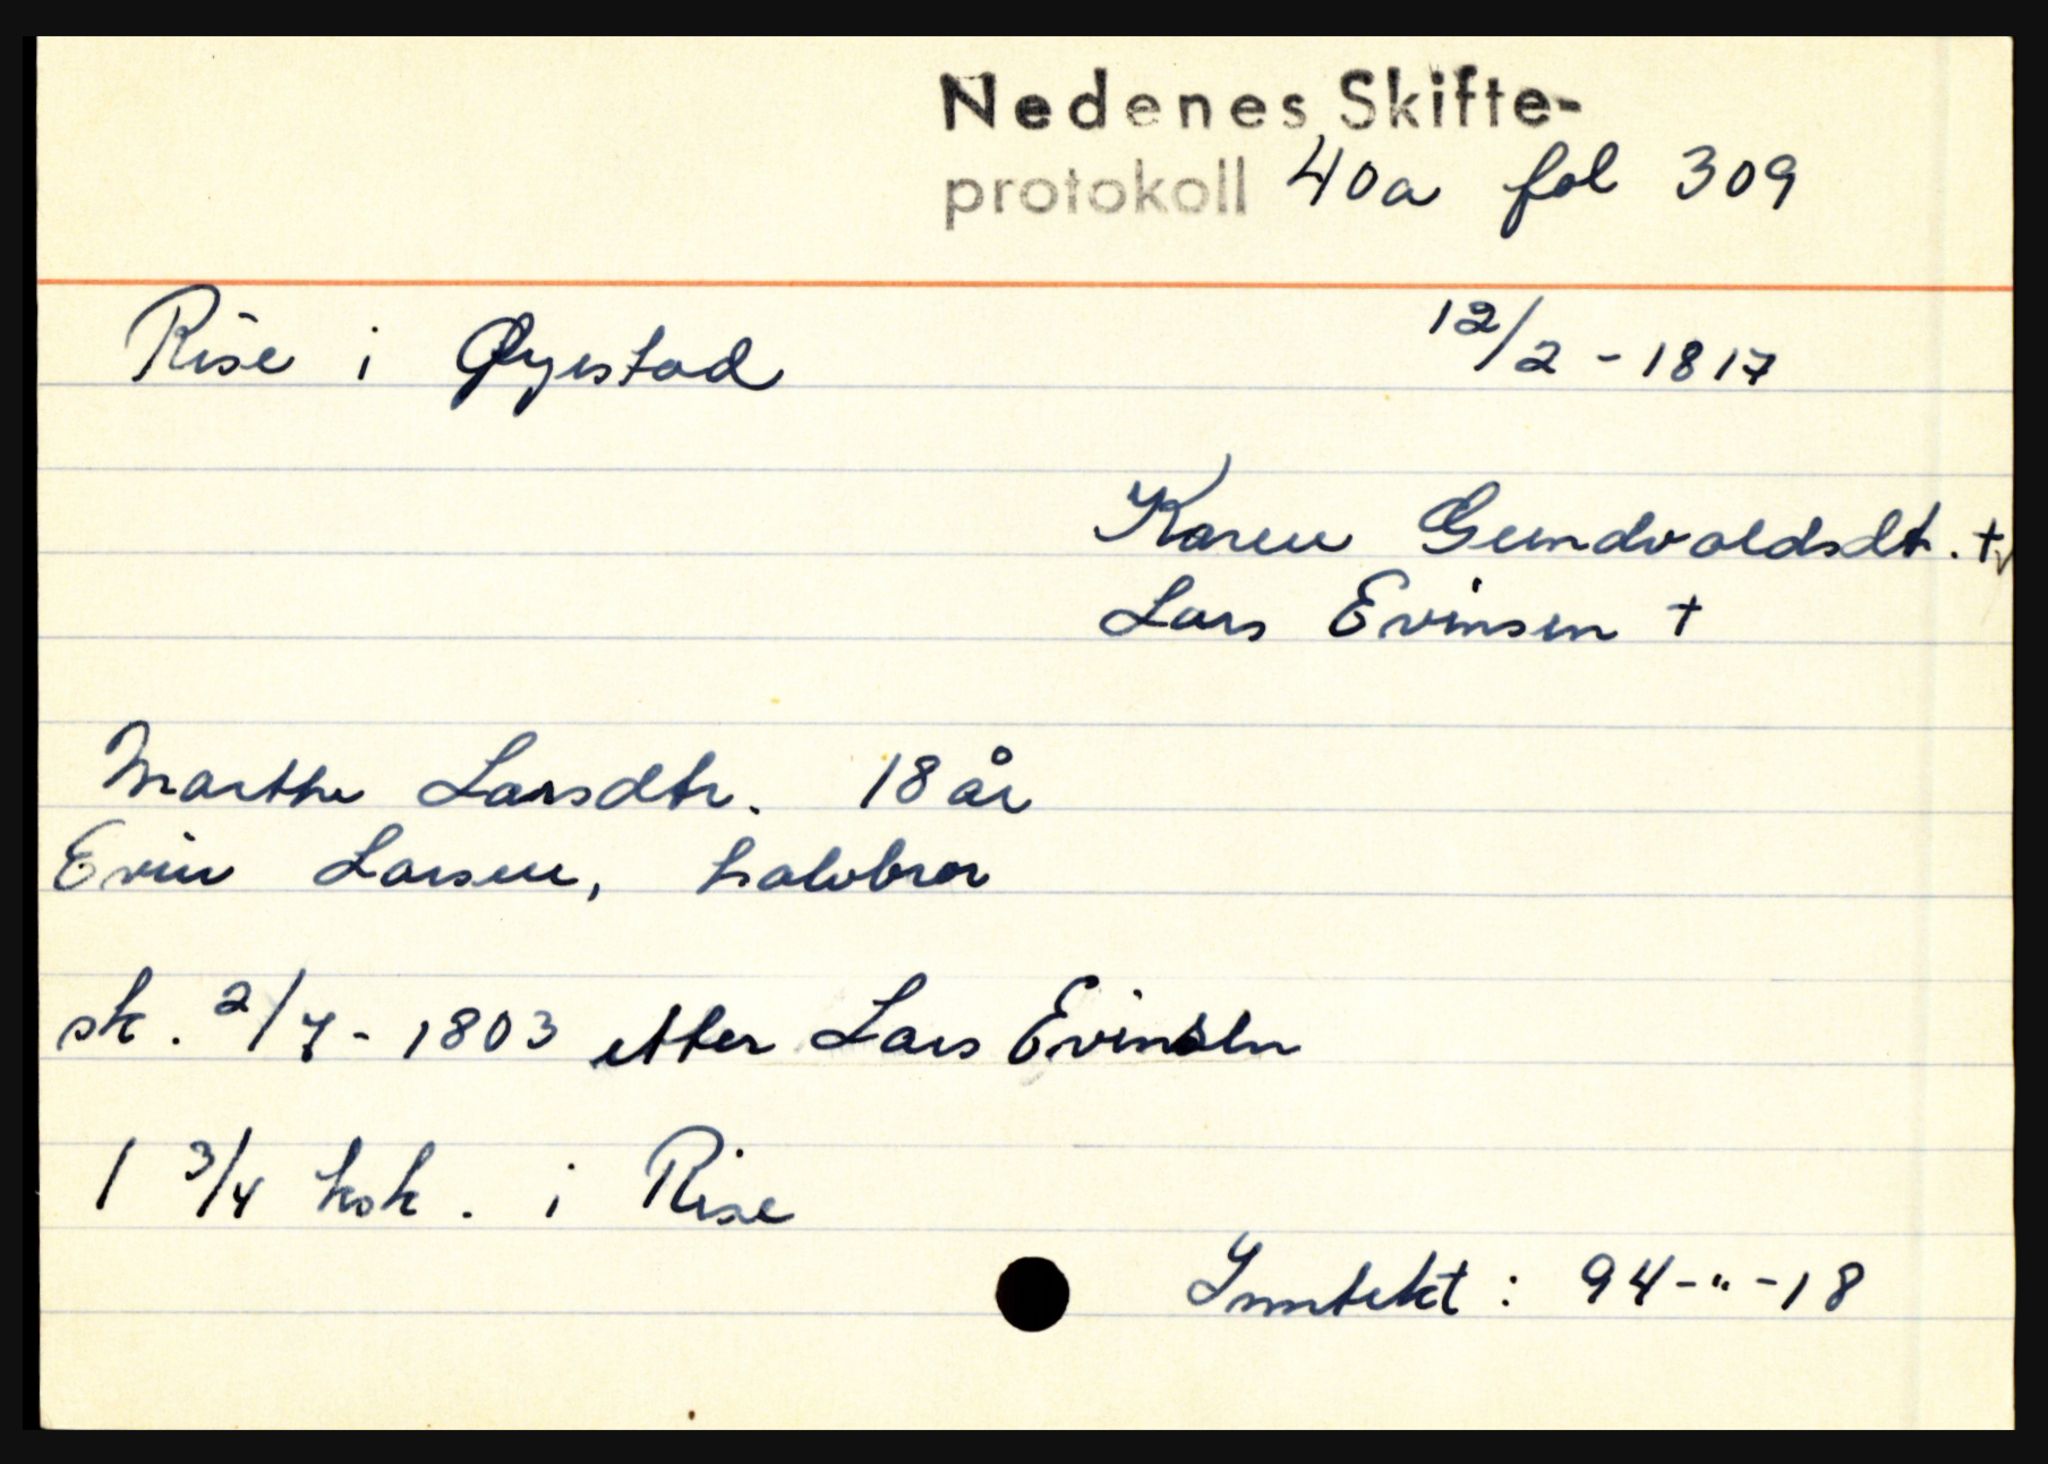 Nedenes Skifte-
protokoll 40a fol 309
Rise i Øyestad 12/2 - 1817
Karen Gundvaldsdt. +
Lars Evinsen +
Marthe Larsdtr. 18 år
Evin Larsen, halvbror
sk. 2/7 - 1803 etter Lars Evinsen
1 3/4 ksk. i Rise
Inntekt: 94-"-18